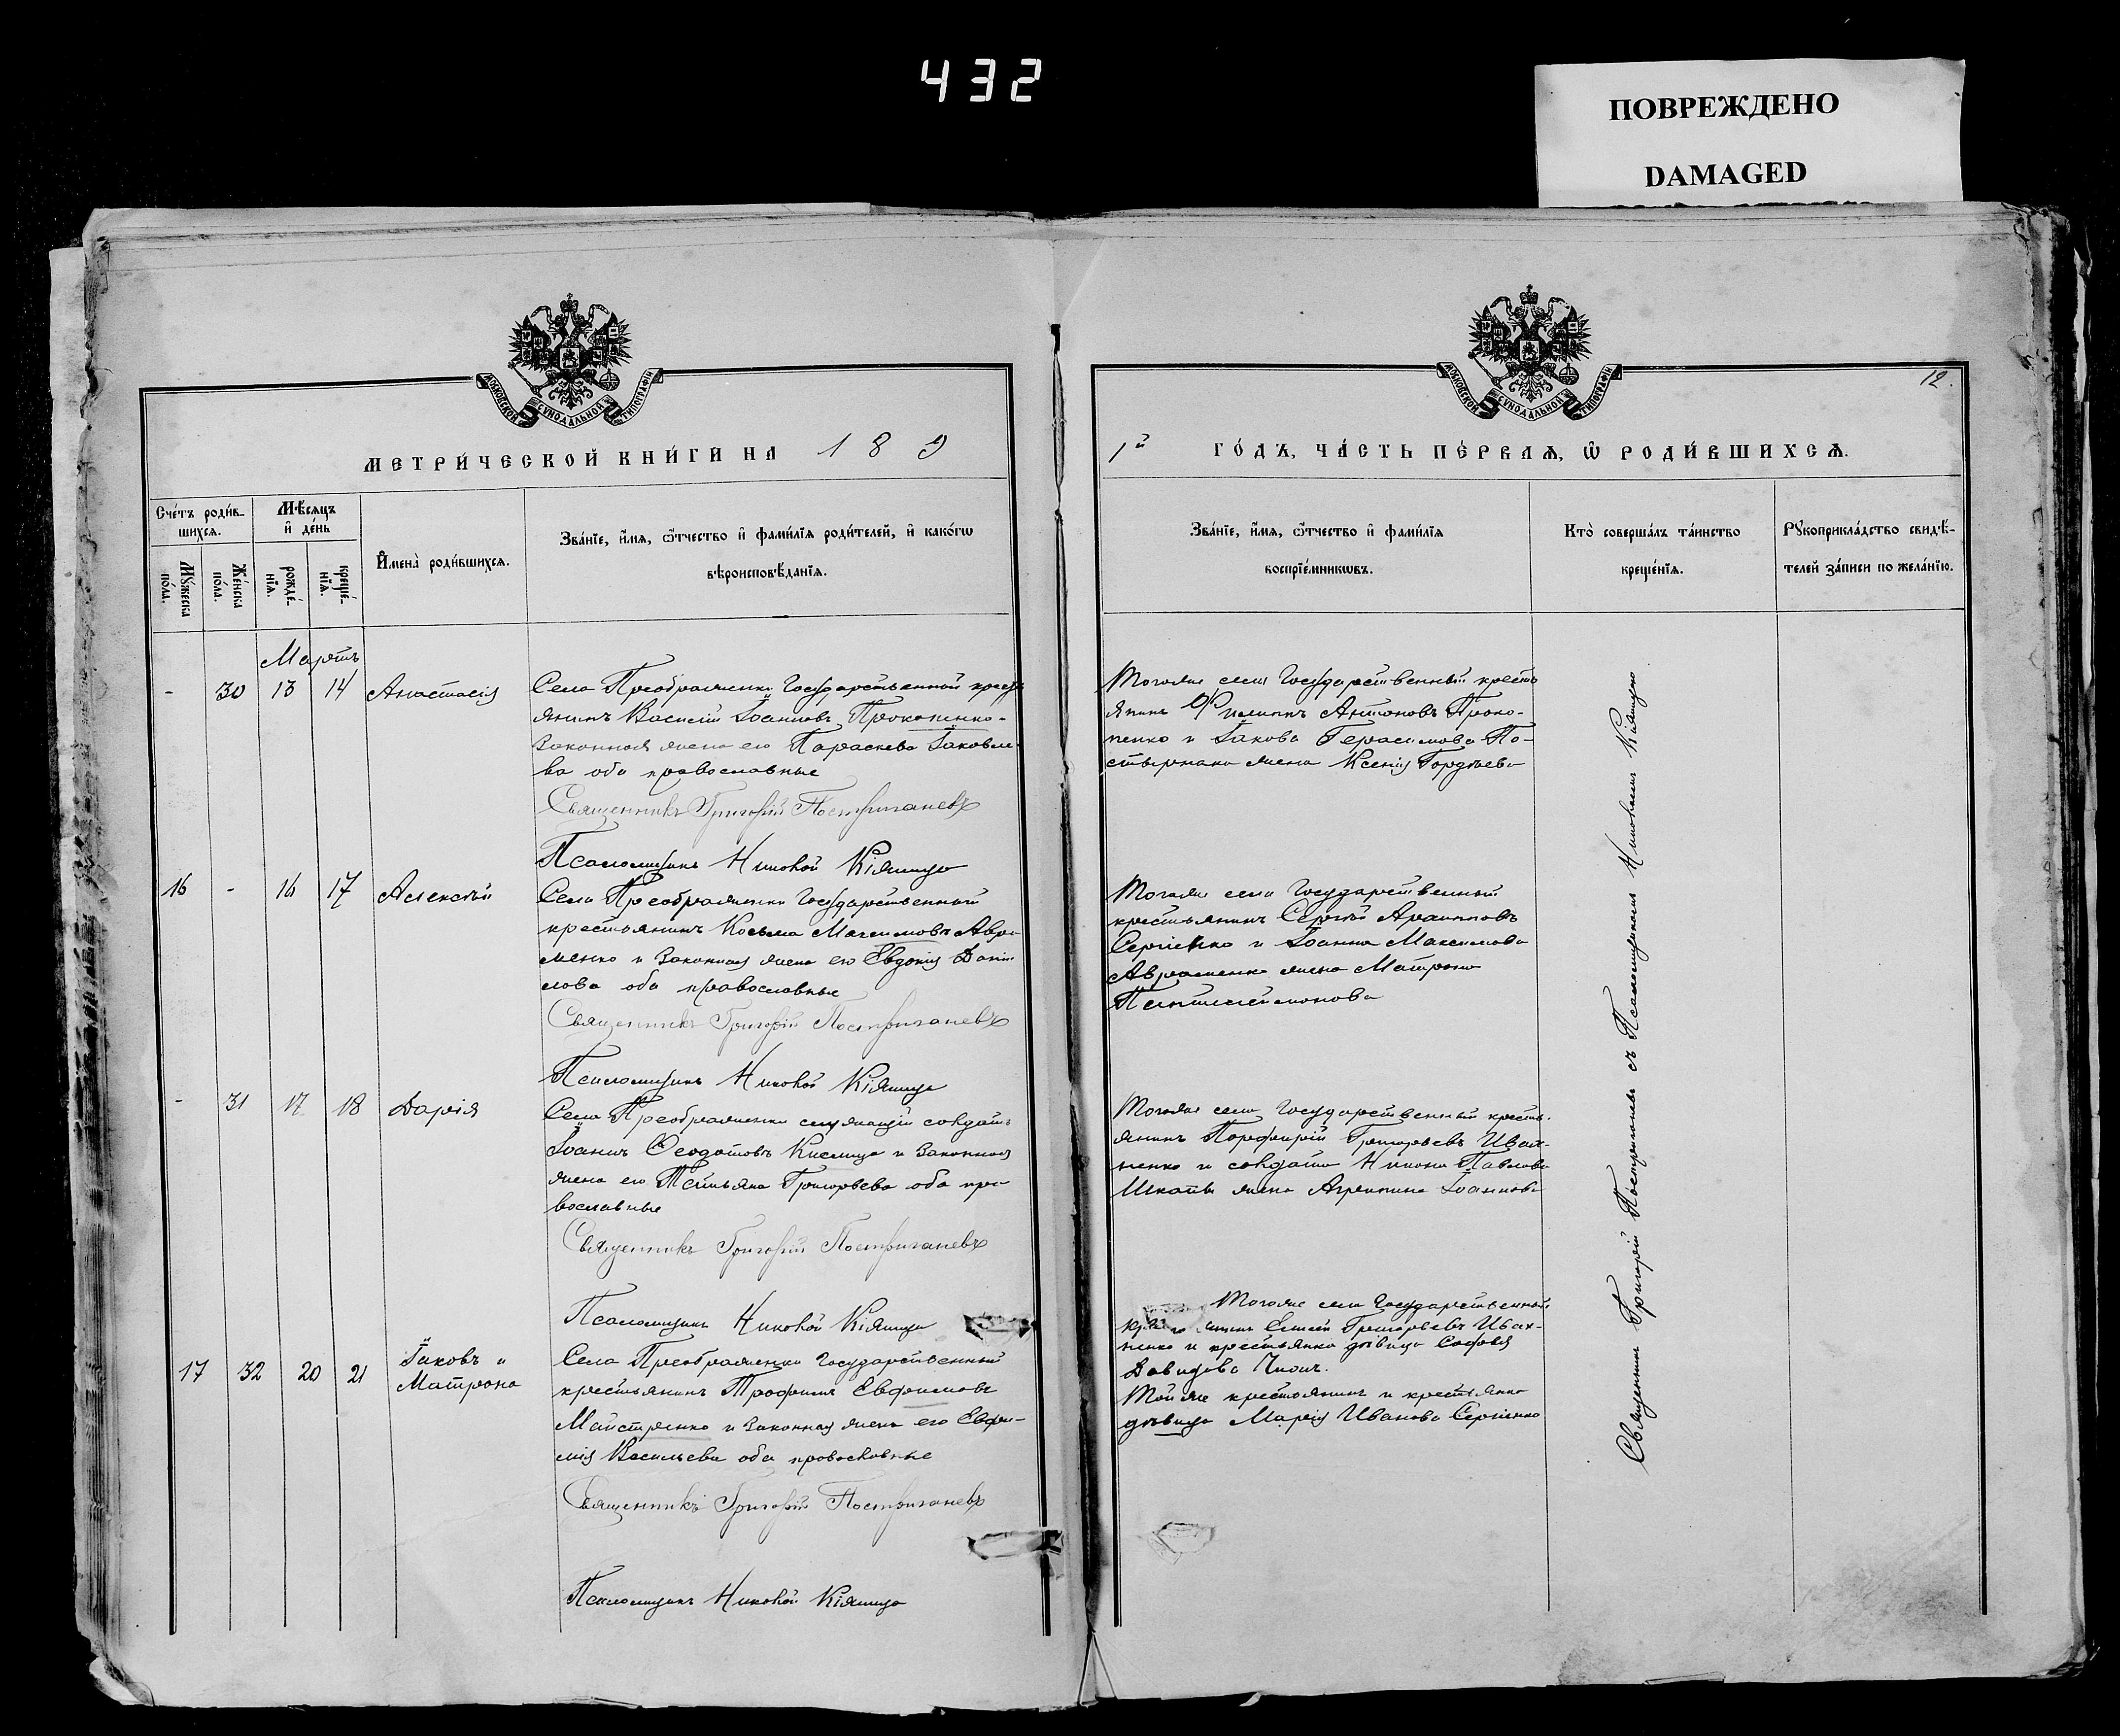 432
ПОВРЕЖДЕНО
DAMAGED
МОСКОВСКОЙ СѴНОДАЛЬНОЙ ТИПОГРАФІИ
МОСКОВСКОЙ СѴНОДАЛЬНОЙ ТИПОГРАФІИ
12.
МЕТРИ́ЧЕСКОЙ КНИ́ГИ НА 189
1й ГО́ДЪ, ЧА́СТЬ ПЕ́РВАѦ, Ѡ҆ РОДИ́ВШИХСѦ.
Сче́тъ роди́в-
шихсѧ.
Мꙋ́жеска
по́ла.
Же́нска
по́ла.
Мѣ́сѧцъ
и҆ де́нь
рожде́-
нїѧ.
креще́-
нїѧ.
И҆мена̀ роди́вшихсѧ.
Зва́нїе, и҆́мѧ, ѻ҆́тчество и҆ фами́лїѧ роди́телей, и҆ како́гѡ
вѣроисповѣ́данїѧ.
Зва́нїе, и҆́мѧ, ѻ҆́тчество и҆ фами́лїѧ
воспрїе́мникѡвъ.
Кто̀ соверша́лъ та́инство
креще́нїѧ.
Рꙋкоприкла́дство свидѣ́-
телей за́писи по жела́нїю.
Мартъ
- 30 13 14 Анастасія
Села Преображенки Государственный кресть
янинъ Василій Іоанновъ Прокопенко-
Законная жена его Параскева Іаковле-
ва оба православные
Священникъ Григорій Постригачевъ
Псаломщикъ Никовой Кіяшко
Тогоже села Государственный кресть
янинъ Филиппъ Антоновъ Проко-
пенко и Іакова Герасимова По-
стырнака жена Ксенія Гордѣева
16 - 16 17 Алексѣй
Села Преображенки Государственный
крестьянинъ Косьма Максимовъ Авра
менко и Законная жена его Евдокія Дани
лова оба православные
Священникъ Григорій Постригачевъ
Псаломщикъ Никовой Кіяшко
Тогоже села Государственный
крестьянинъ Сергѣй
Сергіенко и Іоанна Максимова
Авраменка жена Матрона
Пантелеймонова
- 31 17 18 Дарія
Села Преображенки служащій солдатъ
Іоаннъ Ѳеодотовъ Кислица и Законная
жена его Татьяна Григорьева оба пра
вославные
Священникъ Григорій Постригачевъ
Псаломщикъ Никовой Кіяшко
Тогоже села Государственный кресть-
янинъ Порфирій Григорьевъ Ивах-
ненко и солдата Никона Павлова
жена Агрипина Іоаннова
17 32 20 21 Іаковъ и
Матрона
Села Преображенки Государственный
крестьянинъ Трофимъ Евфимовъ
Майстренко и Законная жена его Евфи-
мія Васильева оба православные
Священникъ Григорій Постригачевъ
Псаломщикъ Никовой Кіяшко
Тогоже села Государственный
Григорьевъ Ивах-
ненко и крестьянка дѣвица Софья
Давидова
Тойже крестьянинъ и крестьянка
дѣвица Марія Иванова Сергіенко
Священникъ Григорій Постригачевъ съ Псаломщикомъ Никовоемъ Кіяшко